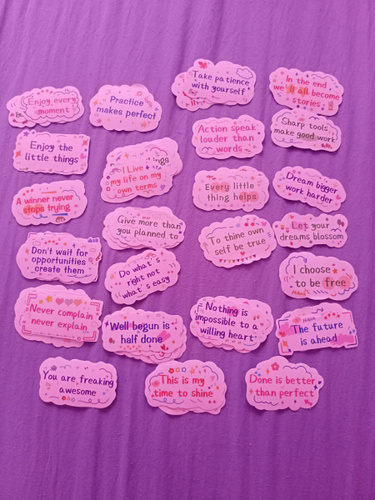 Enjoy every
moment
Practice
makes perfect
Take patience
with yourself
In the end
we all become
stories
Enjoy the
little things
I Live
my life on my
own terms
Action speak
louder than
words
Sharp tools
make good work
A winner never
stops trying
Every little
thing helps
Dream bigger
work harder
Give more than
you planned to
To thine own
self be true
Let your
dreams blossom
Don't wait for
opportunities
create them
Do what's
right not
what's easy
I choose
to be free
Never complain
never explain
Well begun is
half done
Nothing is
impossible to a
willing heart
The future
is ahead
You are freaking
awesome
This is my
time to shine
Done is better
than perfect